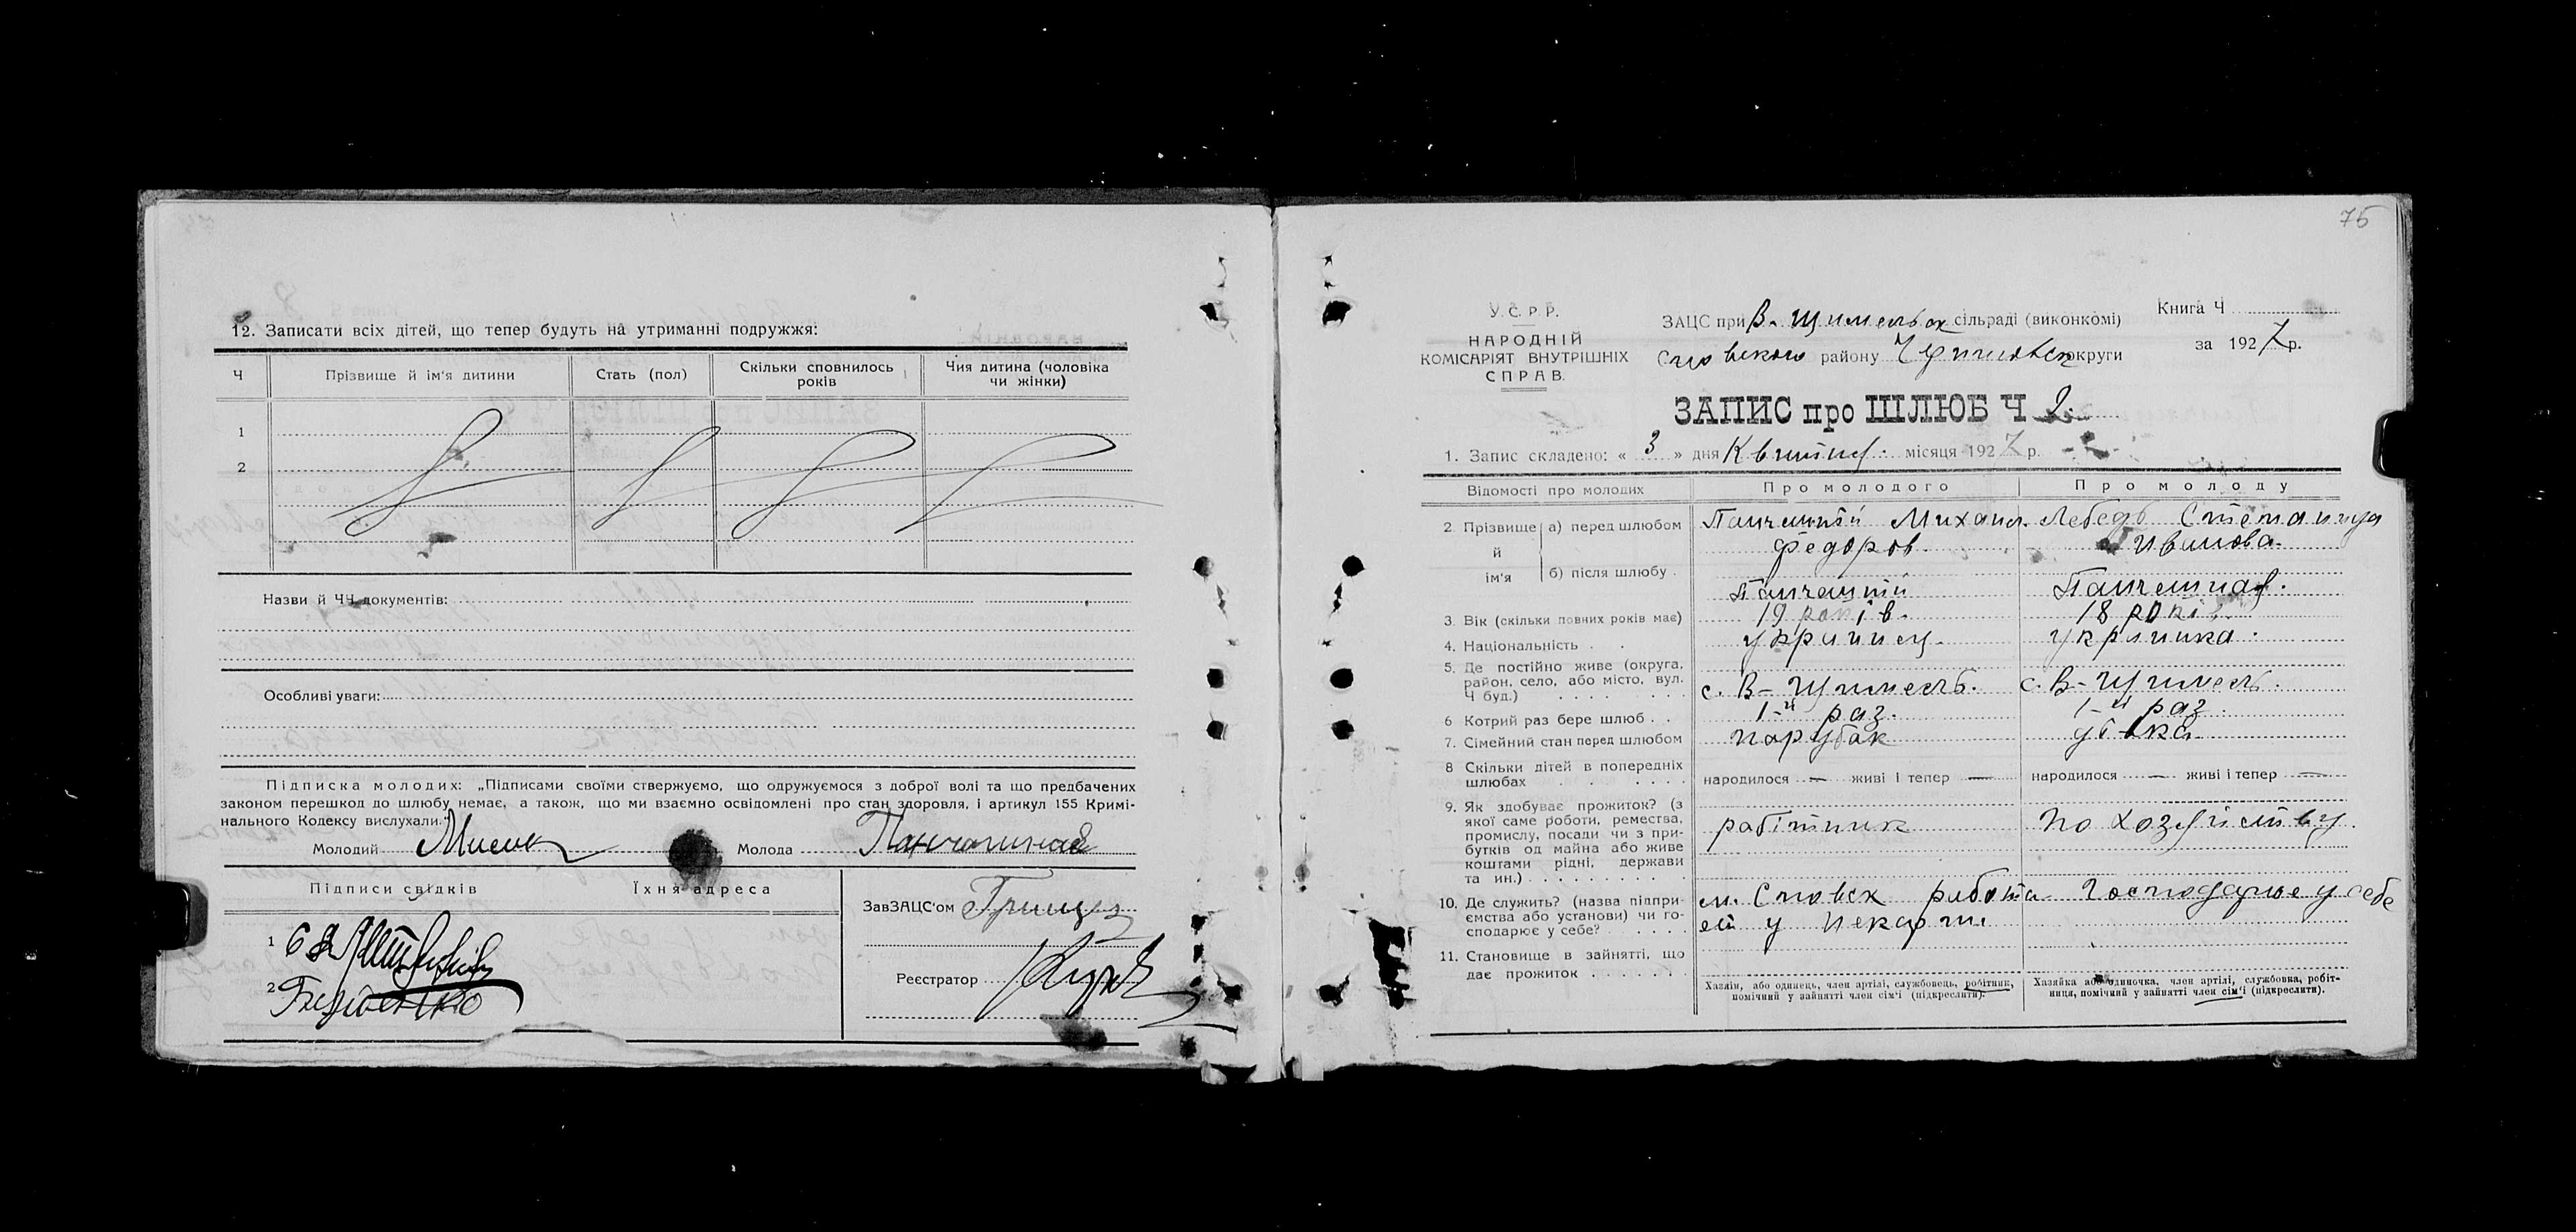 12. Записати всіх дітей, що тепер будуть на утриманні подружжя:
Ч Прізвище й ім'я дитини Стать (пол) Скільки сповнилось років Чия дитина (чоловіка чи жінки)
1
2
Назви й ЧЧ документів:
Особливі уваги:
Підписка молодих: „Підписами своїми ствержуємо, що одружуємося з доброї волі та що предбачених
законом перешкод до шлюбу немає, а також, що ми взаємно освідомлені про стан здоровля, і артикул 155 Кримі-
нального Кодексу вислухали."
Молодий Молода
Підписи свідків Їхня адреса
ЗавЗАЦС'ом
1
Реєстратор
2
75
У.С.Р.Р.
НАРОДНІЙ
КОМІСАРІЯТ ВНУТРІШНІХ
СПРАВ.
ЗАЦС при сільраді (виконкомі)
району округи
Книга Ч
за 1927 р.
ЗАПИС про ШЛЮБ Ч 2.
1. Запис складено: « 3 » дня Квитня місяця 1927 р.
Відомості про молодих Про молодого Про молоду
2 Прізвище й ім'я а) перед шлюбом Михаил Федоров. Лебедь Степанида Иванова.
б) після шлюбу
3. Вік (скільки повних років має) 19 років. 18 років.
4. Національність українец. українка.
5. Де постійно живе (округа,
район, село, або місто, вул.
Ч буд.) с. В- с. В-
6 Котрий раз бере шлюб 1-й раз. 1-й раз.
7. Сімейний стан перед шлюбом парубак
8 Скільки дітей в попередніх
шлюбах народилося — живі і тепер — народилося — живі і тепер —
9. Як здобуває прожиток? (з
якої саме роботи, ремества,
промислу, посади чи з при-
бутків од майна або живе
коштами рідні, держави
та ин.) рабітник по хозяйству.
10. Де служить? (назва підпри-
ємства або установи) чи го-
сподарює у себе? работа-
ет у пекарні. Господарює у себе
11. Становище в зайнятті, що
дає прожиток
Хазяїн, або одинець, член артілі, службовець, робітник,
помічний у зайнятті член сім'ї (підкреслити).
Хазяйка або одиночка, член артілі, службовка, робіт-
ниця, помічний у зайнятті член сім'ї (підкреслити).